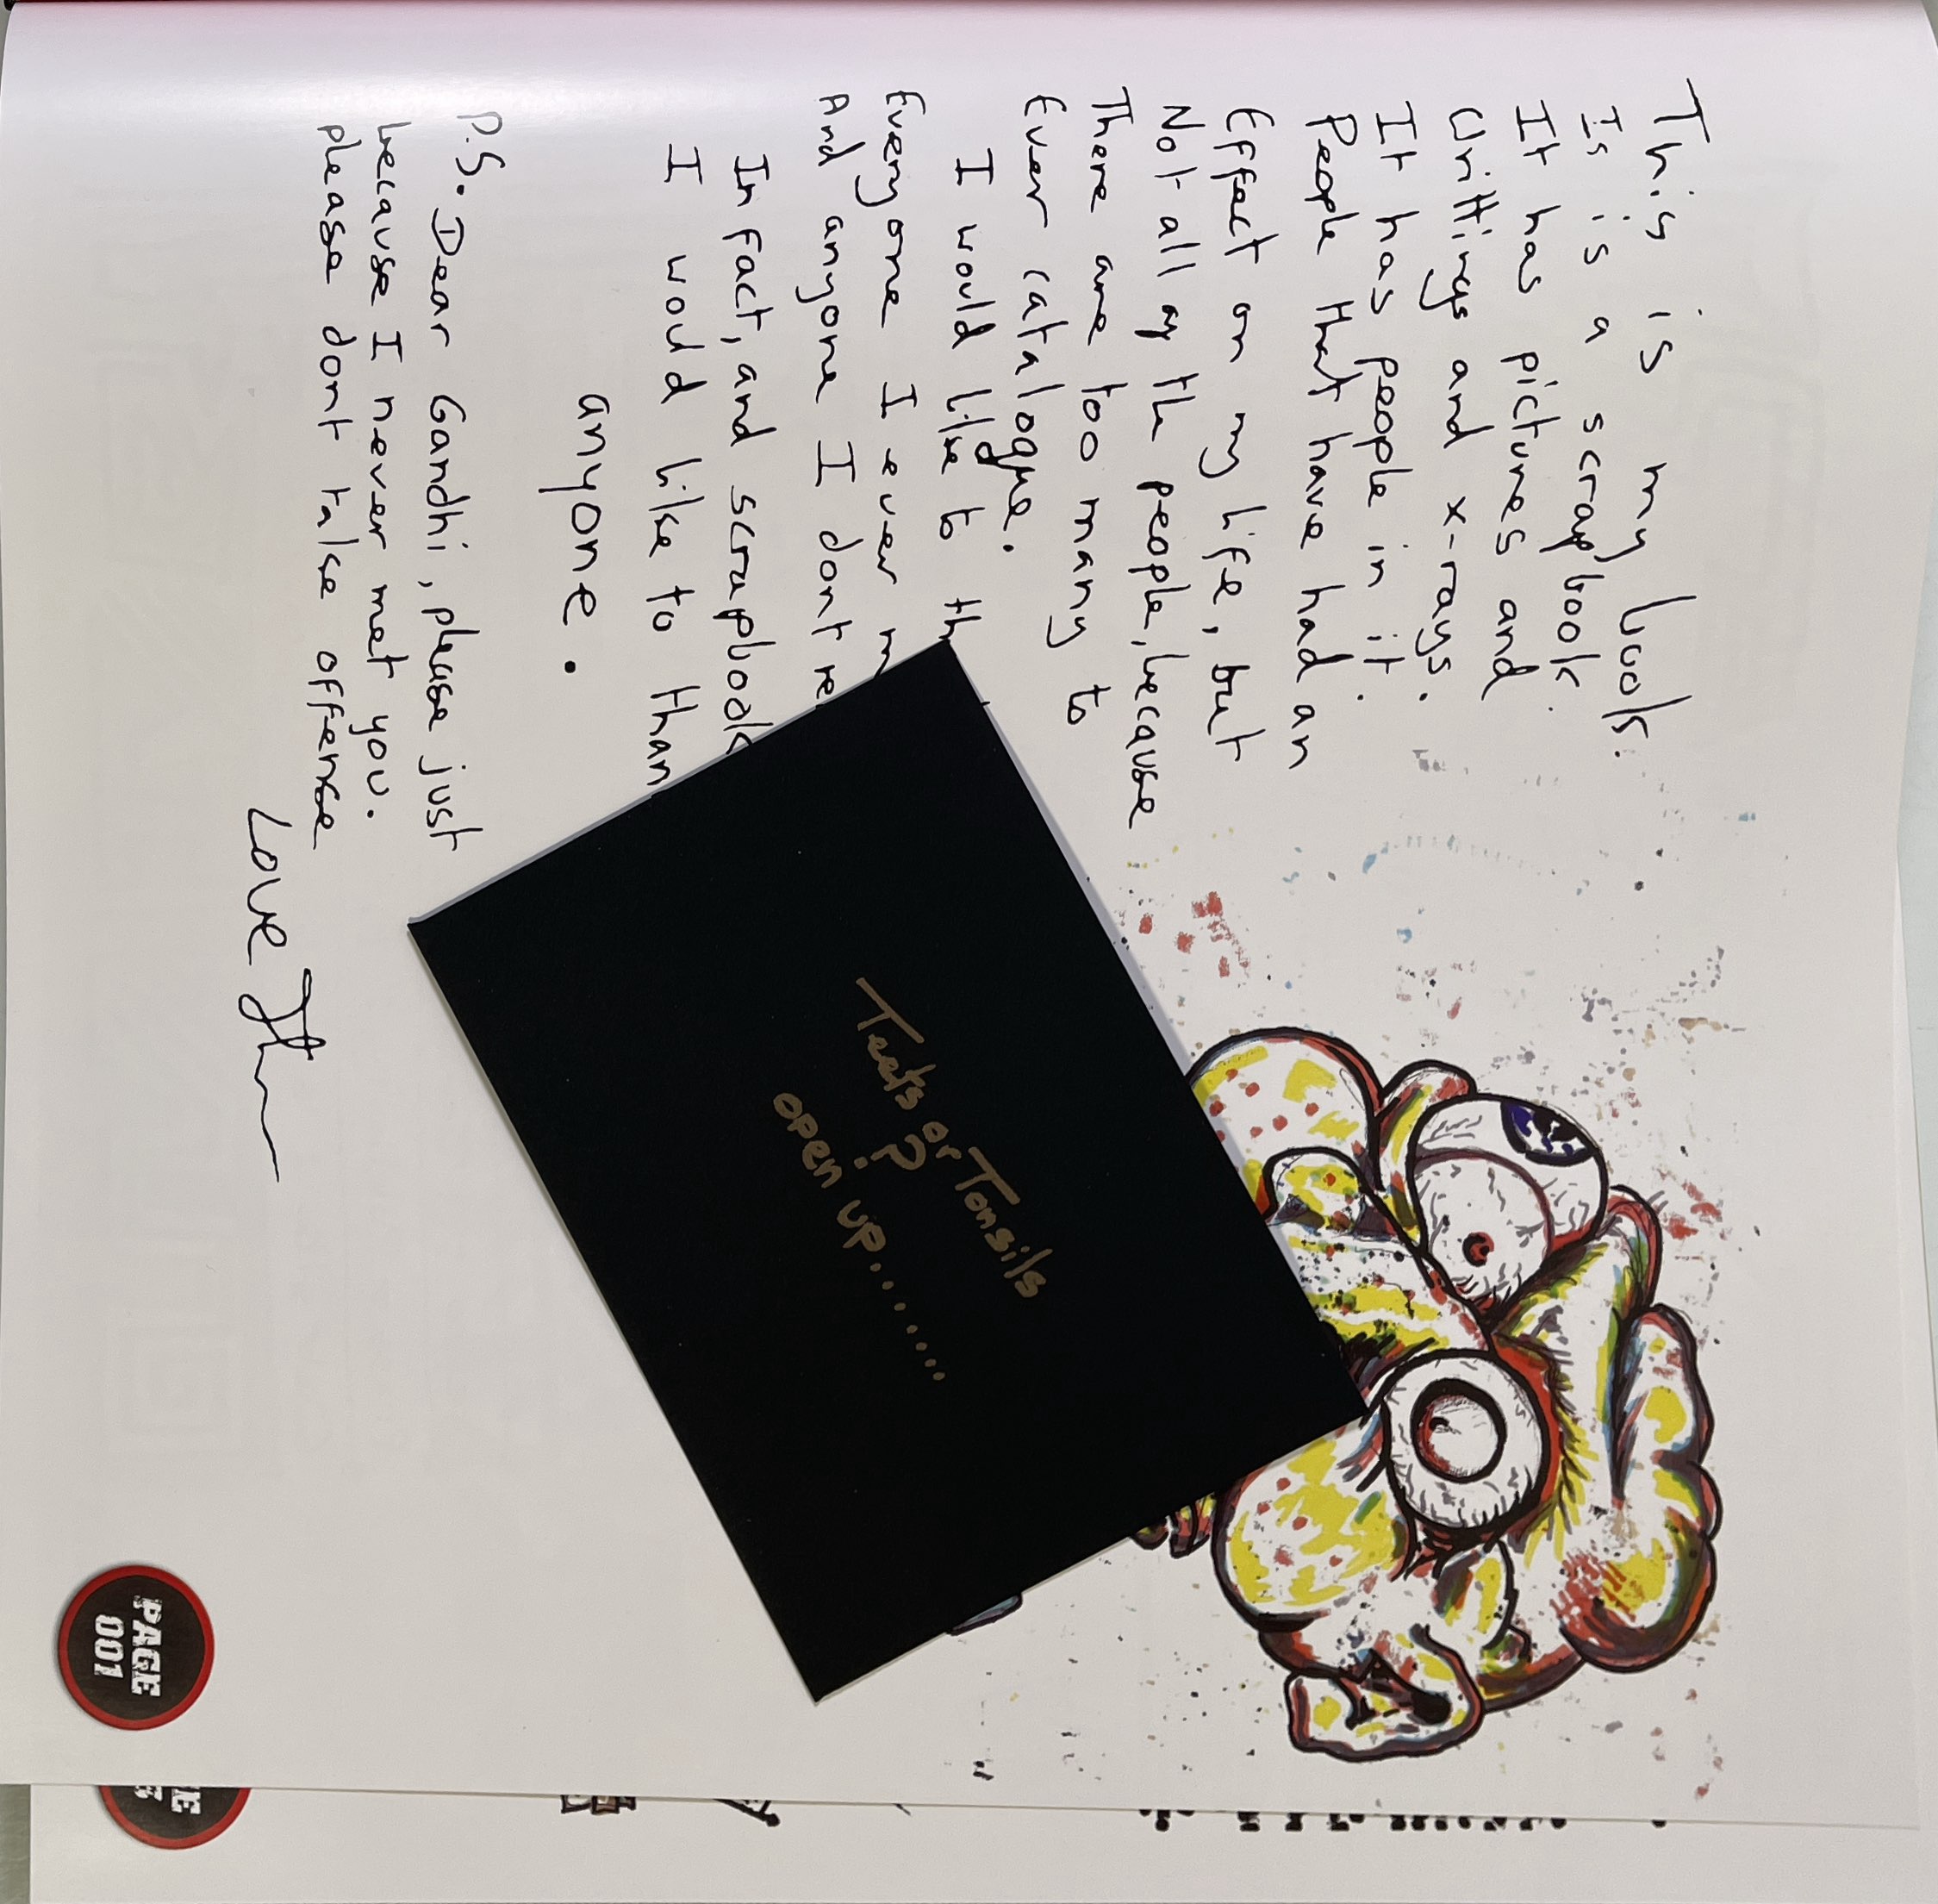 This is my book.
Is is a scrapbook.
It has pictures and
Writtings and x-rays.
It has people in it.
People that have had an
Effect on my life, but
Not all of the people, because
There are too many to
Ever catalogue.
I would like to th
Everyone I ever m
And anyone I dont re
In fact, and scrapbook
I would like to than
anyone.
P.S. Dear Gandhi, please just
because I never met you.
please dont take offense
Love
Teets or Tonsils
?
open up........
PAGE
001